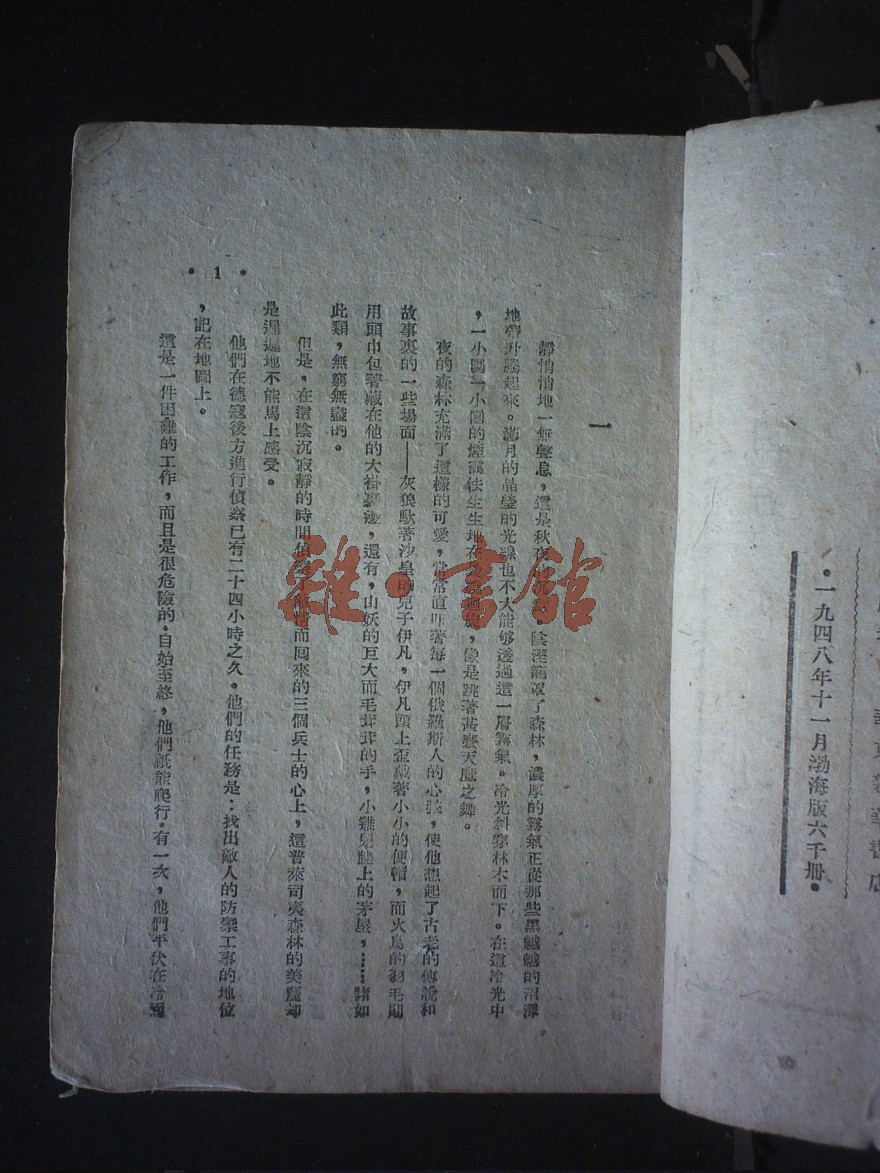 一九四八年十一月渤海版六千冊
一
靜悄悄地一無聲息，這是秋夜，陰溼籠罩了森林，濃厚的霧氣正從那些黑魆魆的沼澤
地帶升騰起來。滿月的晶瑩的光線也不大能够透過這一層霧氣。冷光斜穿林木而下。在這冷光中
，一小團一小團的煙靄怯生生地在，像是跳著天魔之舞。
夜的森林充滿了這樣的可愛，常常直叩著每一個俄羅斯人的心弦，使他想起了古老的傳說和
故事裏的一些場面——灰狼馱著沙皇的兒子伊凡，伊凡頭上歪戴著小小的便帽，而火鳥的羽毛則
用頭巾包著藏在他的大褂裏邊，還有，山妖的巨大而毛茸茸的手，小雞兒腿上的茅屋，……諸如
此類，無窮無盡的。
但是，在這陰沉寂靜的時間偵察了敵情而囘來的三個兵士的心上，這普萊司夷森林的美麗却
是遲遲地不能馬上感受。
他們在德寇後方進行偵察已有二十四小時之久。他們的任務是：找出敵人的防禦工事的地位
，記在地圖上。
這是一件困難的工作，而且是很危險的。自始至終，他們祇能爬行。有一次，他們平伏在冷
• 1 •
雜·書館